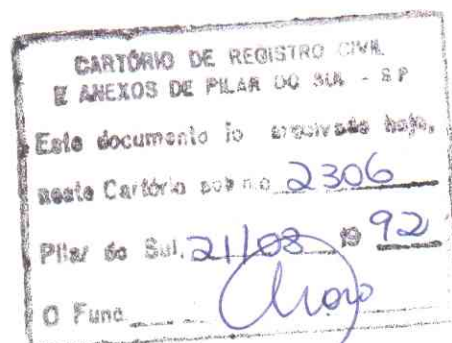 CARTÓRIO DE REGISTRO CIVIL
E ANEXOS DE PILAR DO SUL - S P
Este documento fo arquivado hoje,
neste Cartório sob n.o 2306
Pilar do Sul, 21/08 19 92
O Func.